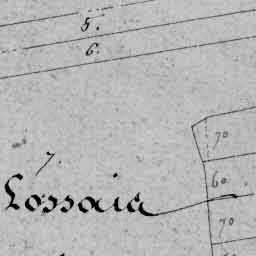 5.
6.
7.
70
60.
Lossaia
70